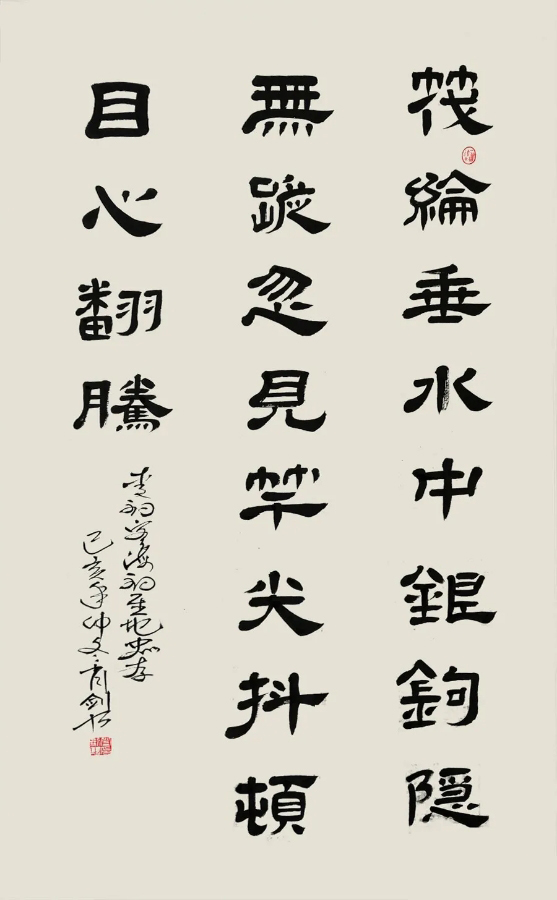 筏綸垂水中銀鉤隱
無蹤忽見竿尖抖頓
目心翻騰
海釣聖地
己亥年仲冬